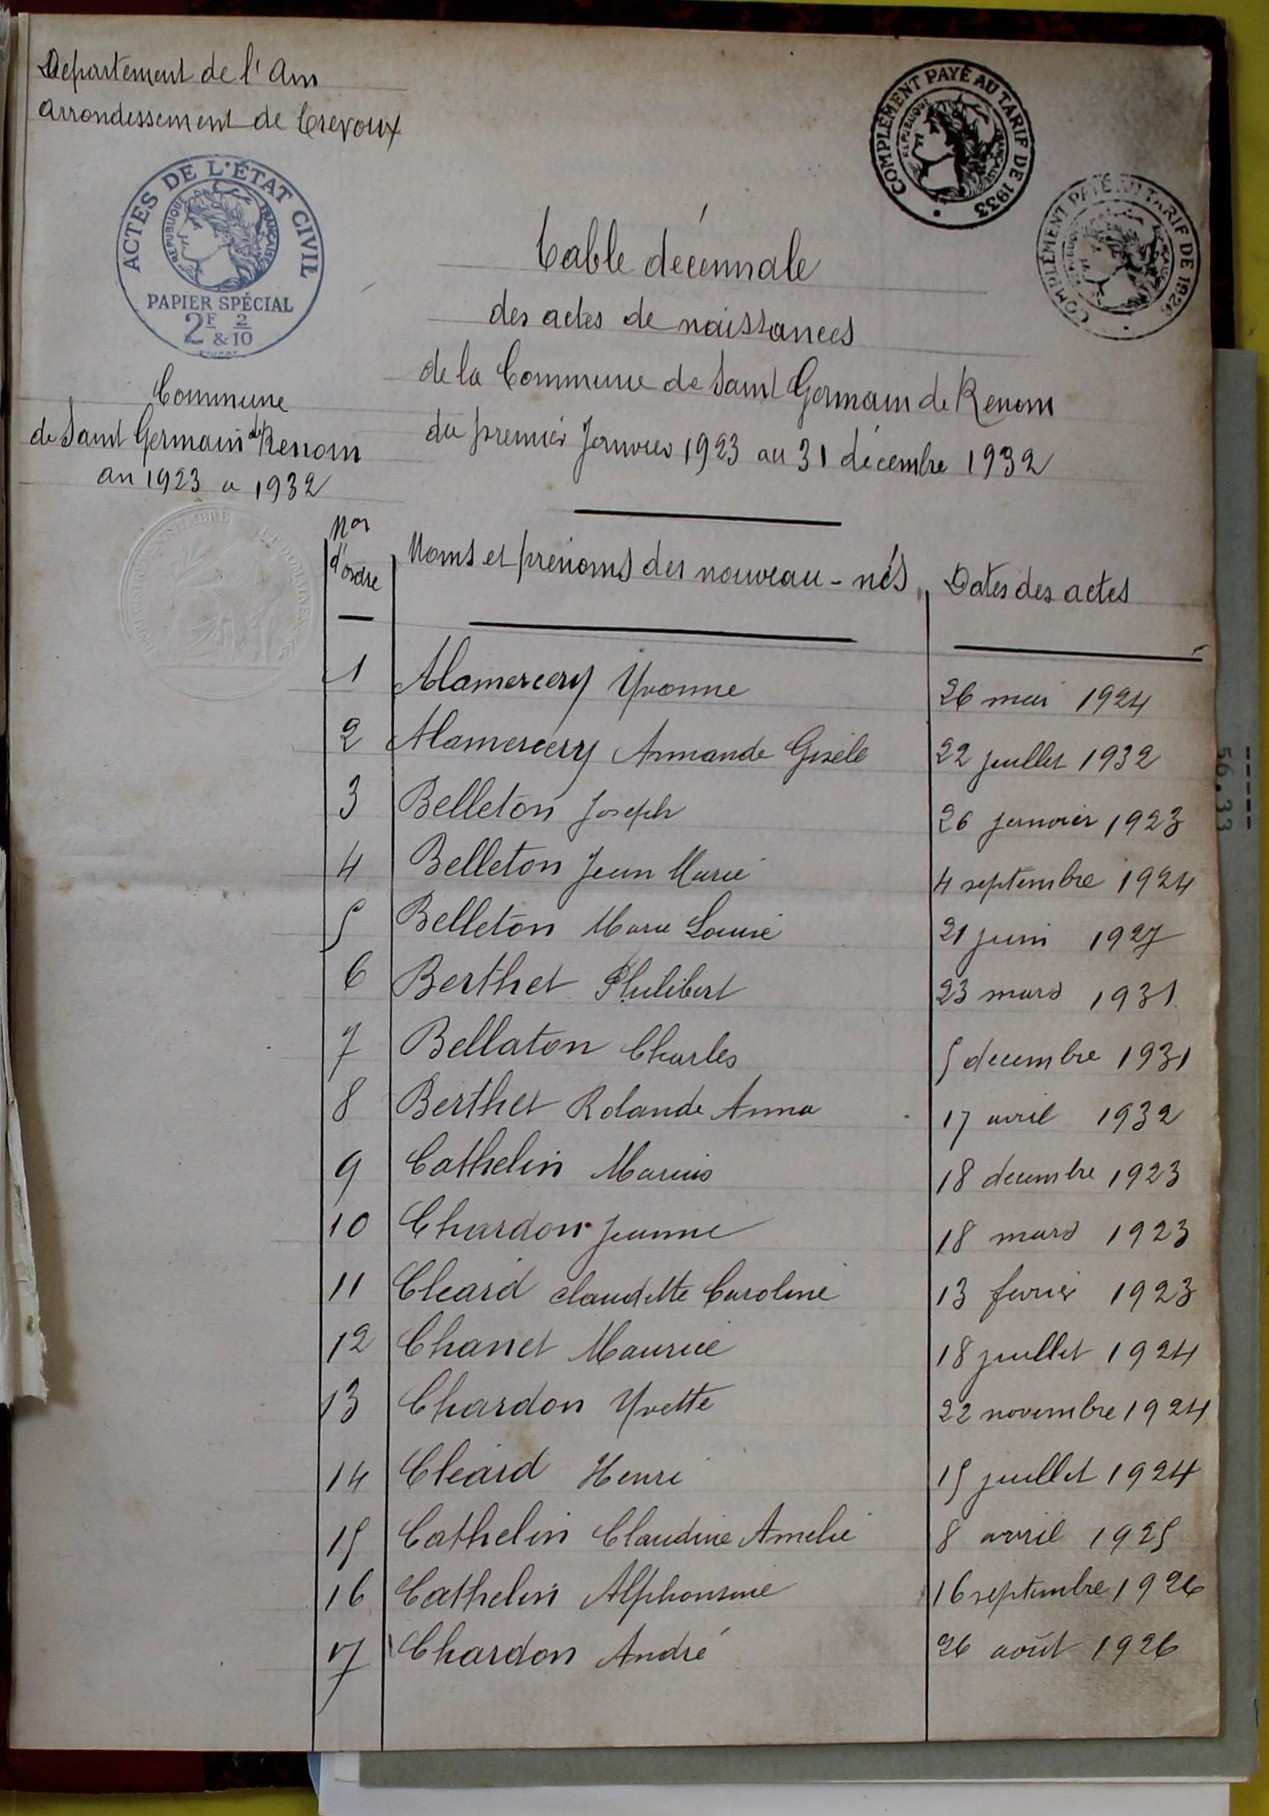 Departement de l'Ain
arrondissement de Trevoux
COMPLÉMENT PAYÉ AU TARIF DE 1933
RÉPUBLIQUE FRANÇAISE
COMPLÉMENT PAYÉ AU TARIF DE 1926
ACTES DE L'ÉTAT CIVIL
RÉPUBLIQUE FRANÇAISE
PAPIER SPÉCIAL
2F & 2/10
Table décennale
des actes de naissances
de la Commune de Saint Germain de Renom
du premier Janvier 1923 au 31 décembre 1932
Commune
de Saint Germain de Renom
an 1923 a 1932
Nos d'ordre Noms et prenoms des nouveau-nés Dates des actes
1 Alamercery Yvonne 26 mai 1924
2 Alamercery Armande Gisèle 22 juillet 1932
3 Belleton Joseph 26 janvier 1923
4 Belleton Jean Marie 4 septembre 1924
5 Belleton Marie Louise 21 juin 1927
6 Berthet Philibert 23 mars 1931
7 Bellaton Charles 5 decembre 1931
8 Berthet Rolande Anna 17 avril 1932
9 Cathelin Marius 18 decembre 1923
10 Chardon Jeanne 18 mars 1923
11 Cleard Claudette Caroline 13 fevrier 1923
12 Chanet Maurice 18 juillet 1924
13 Chardon Yvette 22 novembre 1924
14 Cleard Henri 15 juillet 1924
15 Cathelin Claudine Amelie 8 avril 1925
16 Cathelin Alphonsine 16 septembre 1926
17 Chardon André 26 août 1926
56.33